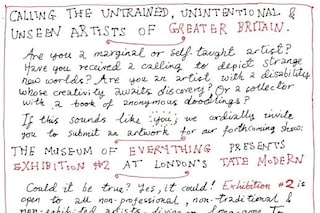 CALLING THE UNTRAINED, UNINTENTIONAL &
UNSEEN ARTISTS OF GREATER BRITAIN.
Are you a marginal or self-taught artist?
Have you received a calling to depict strange
new worlds? Are you an artist with a disability
whose creativity awaits discovery? Or a collector
with a book of anonymous doodlings?
If this sounds like you, we cordially invite
you to submit an artwork for our forthcoming show:
THE MUSEUM OF EVERYTHING PRESENTS
EXHIBITION #2 AT LONDON'S TATE MODERN
Could it be true? Yes, it could! Exhibition #2 is
open to all non-professional, non-traditional &
artists,